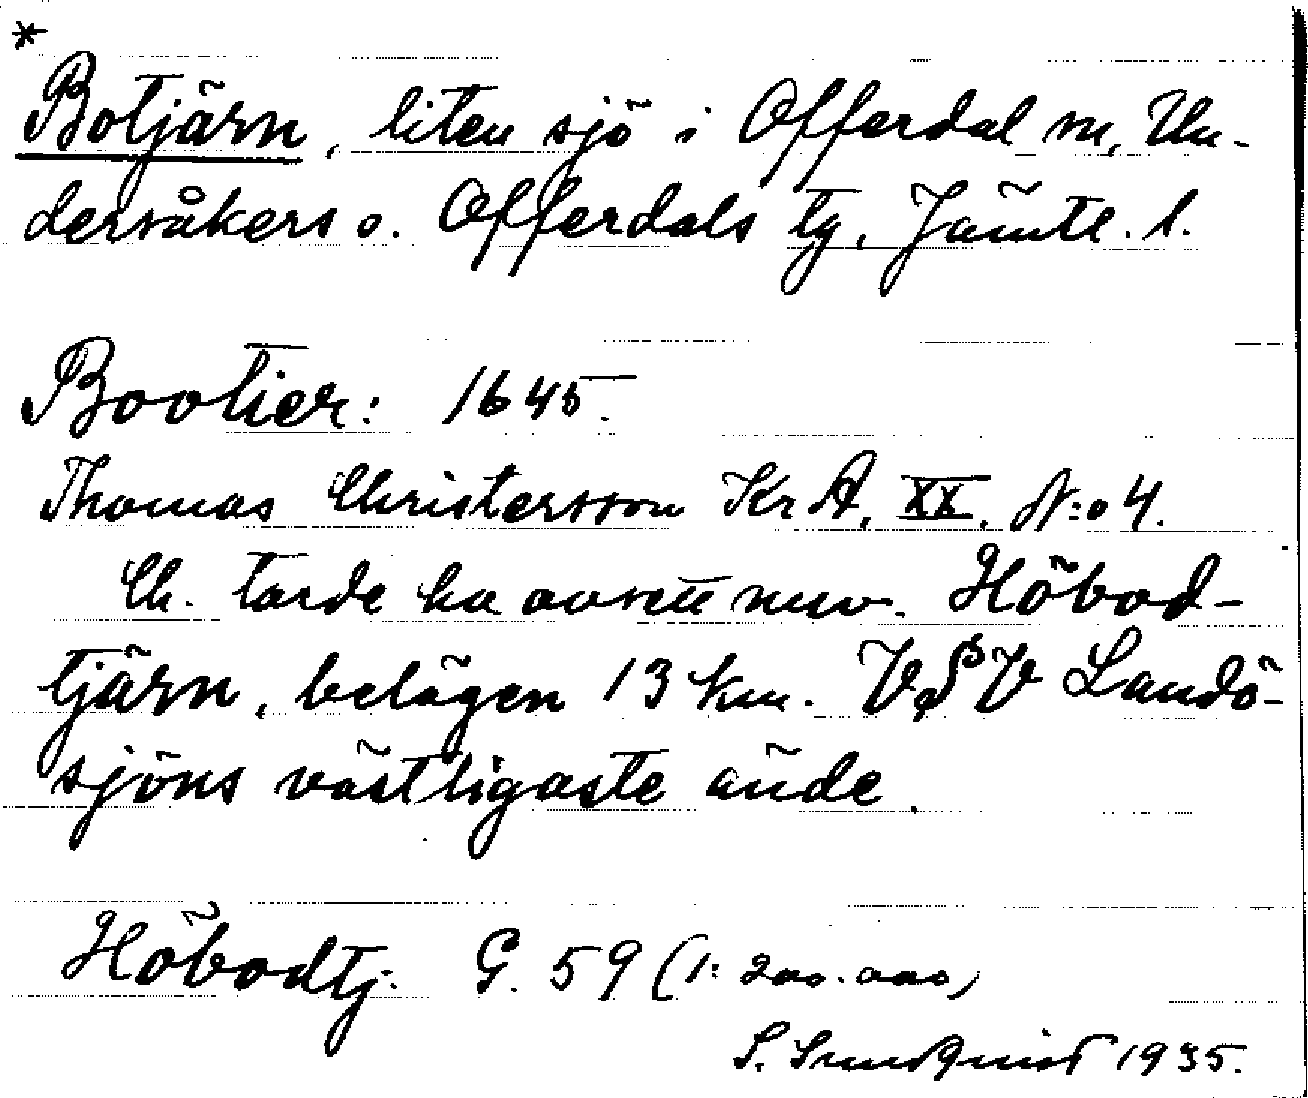 *
Botjärn, liten sjö i Offerdal sn, Un-
dersåkers o. Offerdals tg, Jämtl. l.
Bootier: 1645.
Thomas Christersson KrA, XX, N:o 4.
Ch. torde ha avsett nuv. Höbod-
tjärn, belägen 13 km. VSV Landö-
sjöns västligaste ände.
Höbodtj. G. 59 (1: 200.000)
S. Sundquist 1935.